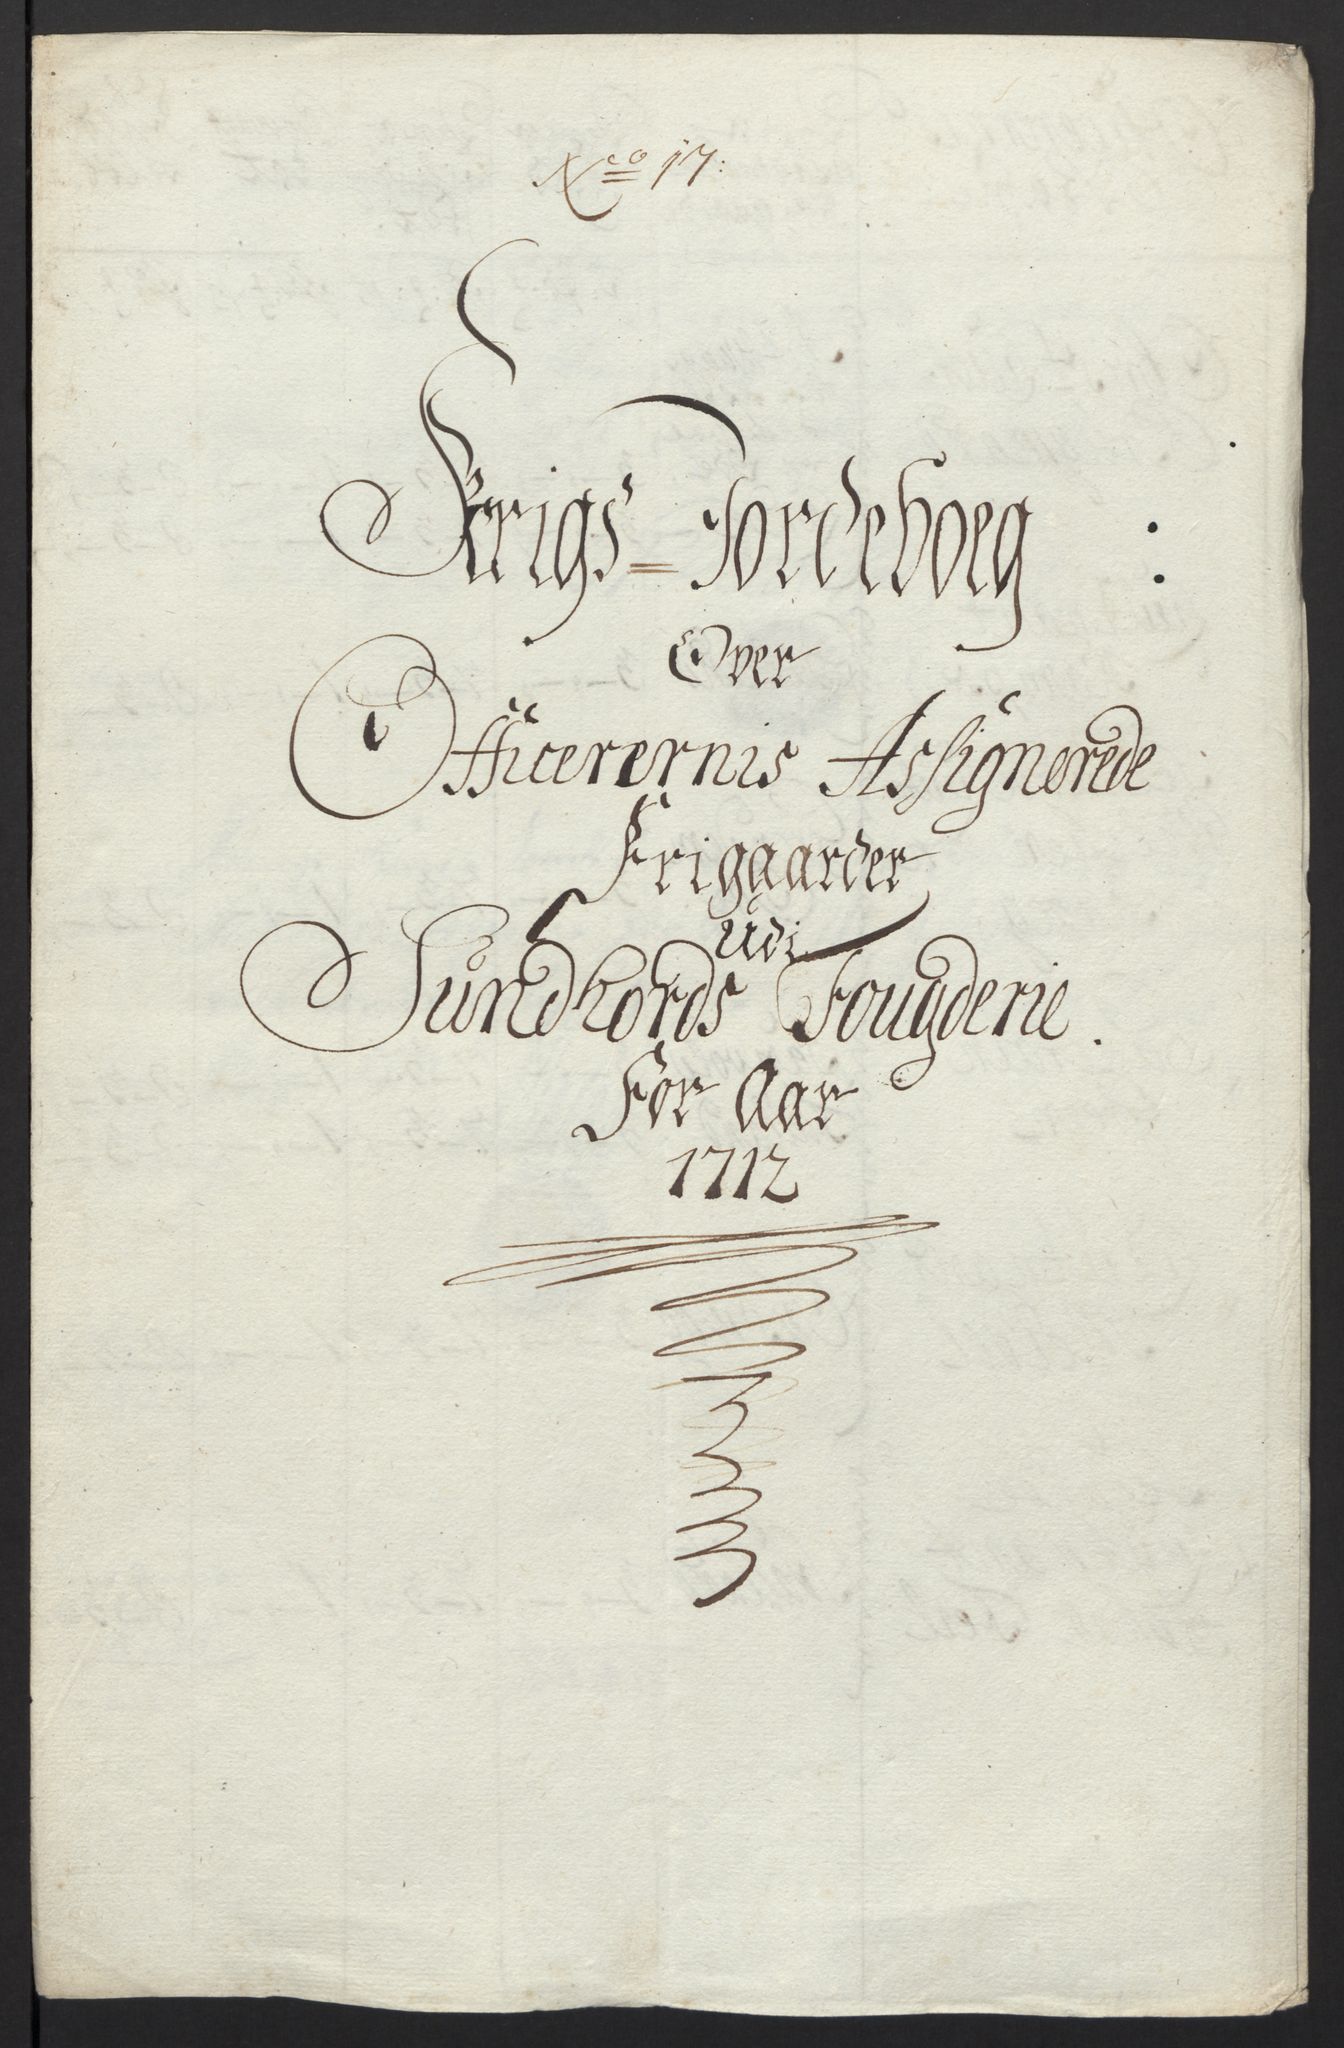 Nco 17:
Krigs=Jordeboeg
Over
Officerernis Assignerede
Frigaarder
Udi
Sundhords Fougderie.
For Aar
1712